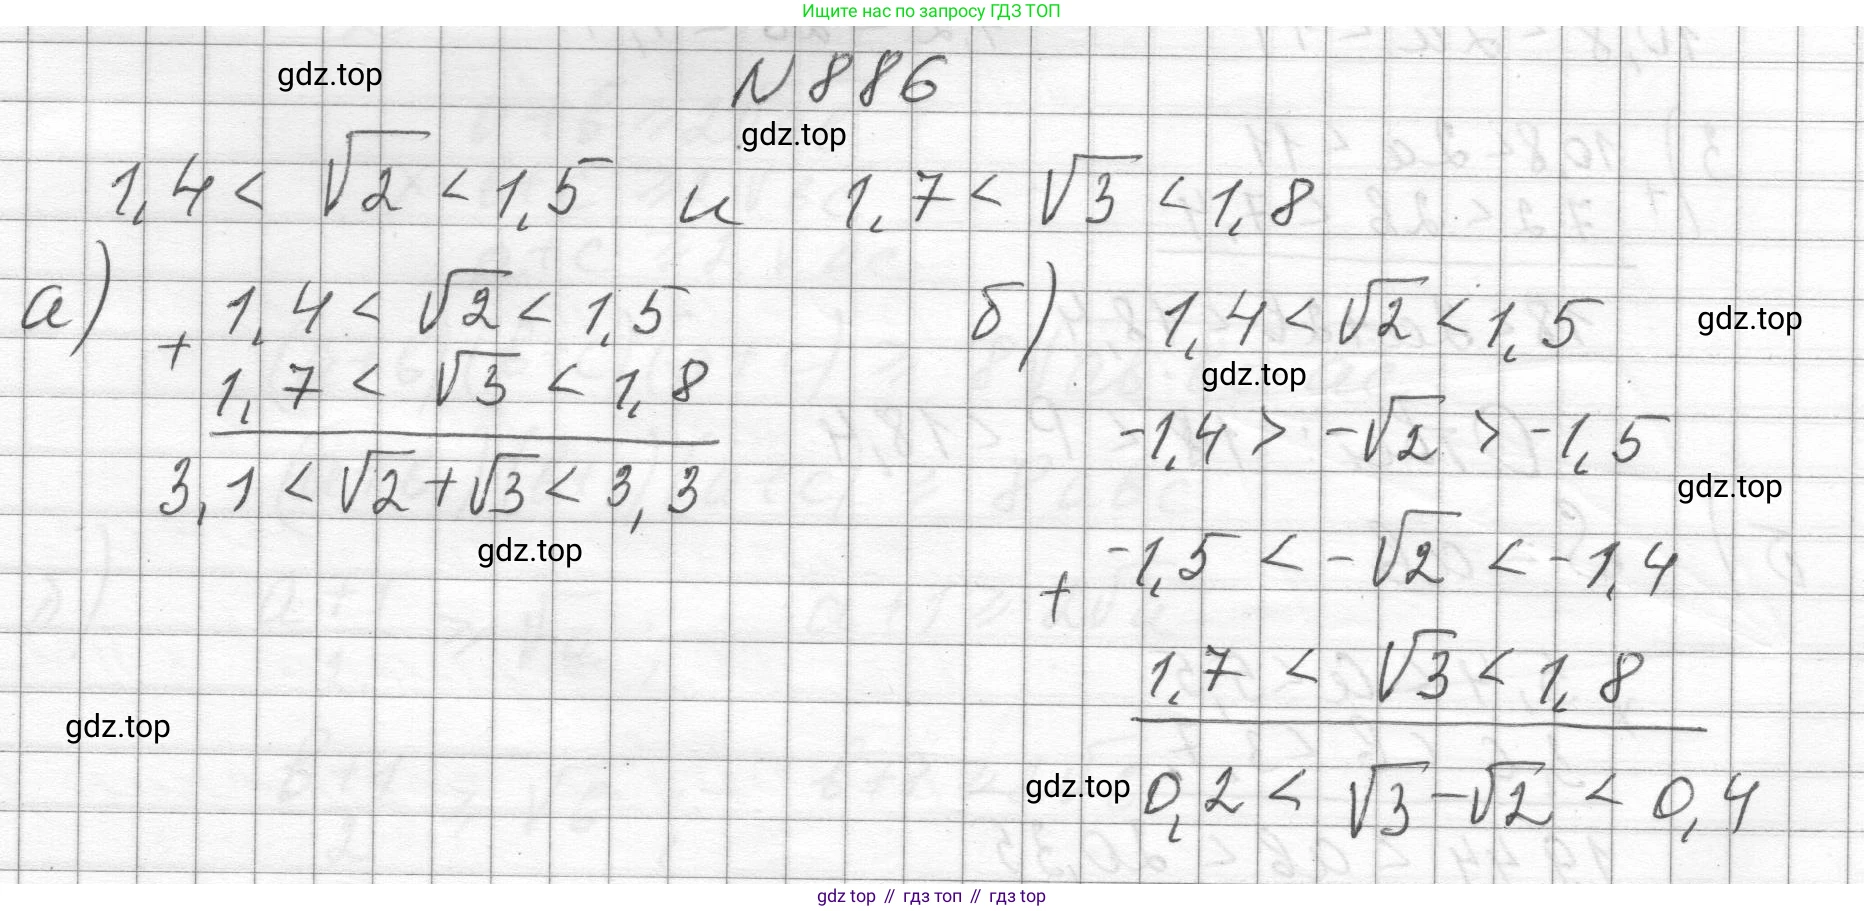 Ищите нас по запросу ГДЗ ТОП
gdz.top
N 886
gdz.top
1,4 < √2 < 1,5 и 1,7 < √3 < 1,8
а)
+ 1,4 < √2 < 1,5
1,7 < √3 < 1,8
3,1 < √2 + √3 < 3,3
gdz.top
б) 1,4 < √2 < 1,5
gdz.top
gdz.top
-1,4 > -√2 > -1,5
gdz.top
+ -1,5 < -√2 < -1,4
1,7 < √3 < 1,8
0,2 < √3 - √2 < 0,4
gdz.top
gdz.top
gdz.top // гдз топ // гдз.top